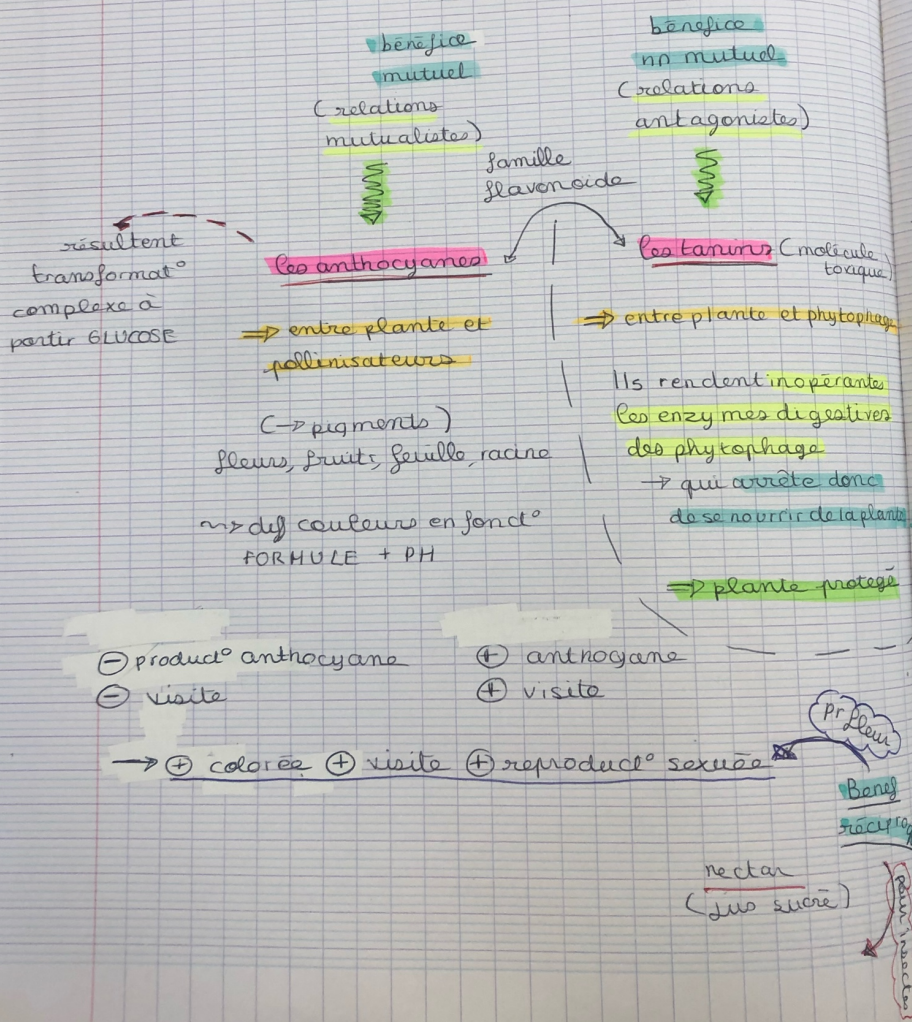 bénéfice
mutuel
(relations
mutualistes)
bénéfice
nn mutuel
(relations
antagonistes)
famille
flavonoïde
résultent
transformat°
complexe à
partir GLUCOSE
les anthocyanes
=> entre plante et
pollinisateurs
(-> pigments)
fleurs, fruits, feuille, racine
~> dif couleurs en fonct°
FORMULE + PH
les tanins (molécule
toxique)
=> entre plante et phytophage
Ils rendent inopérantes
les enzymes digestives
des phytophage
-> qui arrête donc
de se nourrir de la plante
=> plante protegé
⊖ product° anthocyane
⊖ visite
⊕ anthocyane
⊕ visite
-> ⊕ colorée ⊕ visite ⊕ reproduct° sexuée
pr fleur
Benef
réciproq
nectar
(jus sucré)
pour insectes